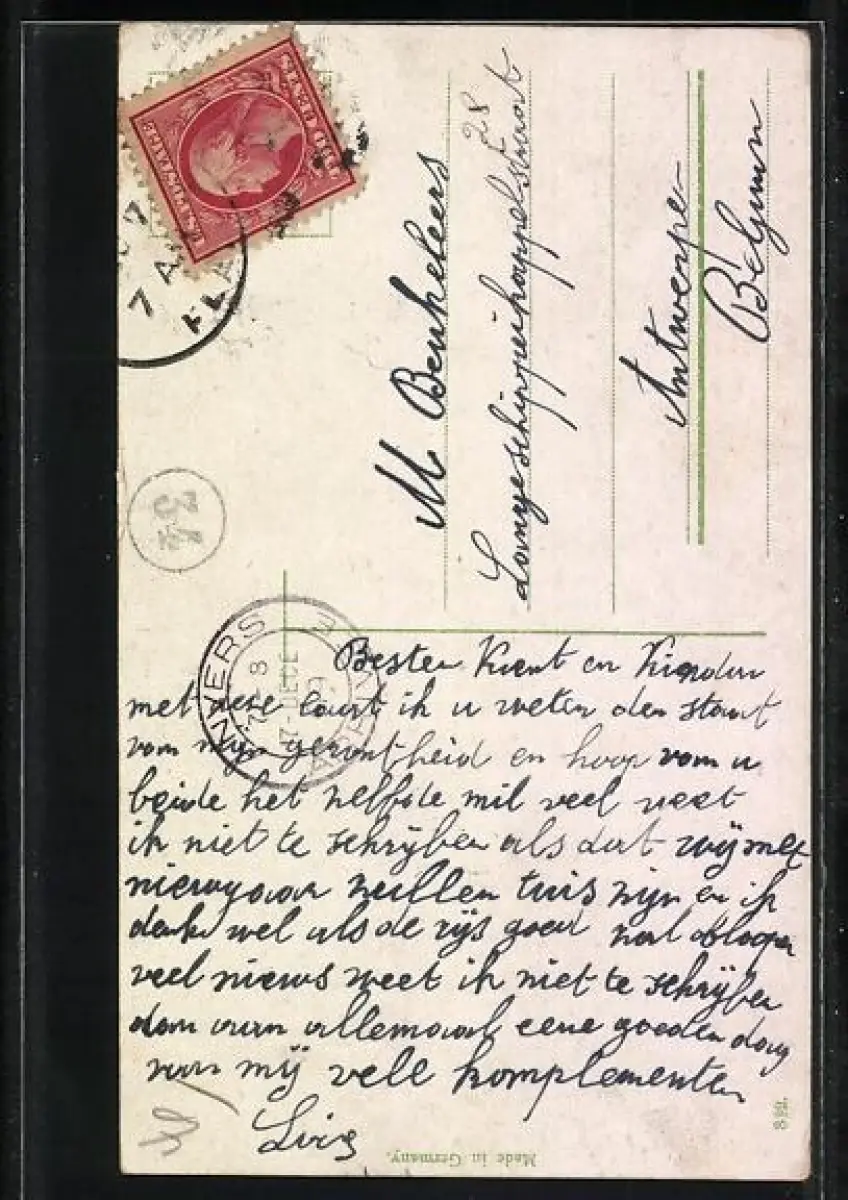 U.S. POSTAGE
TWO CENTS
7 A
FLA
M Beukeleers
28
Lange schipperskappelstraat
Antwerpe
Belgium
34
ANVERS
8
7 - DECE
ANTWE
Besten Vrient en Vrienden
met deze caart ik u weten den staat
van mijn gezontheid en hoop van u
beide het zelfste mil veel weet
ik niet te schrijben als dat wij met
nieuwjaar zullen tuis zijn en ik
denk wel als de rijs goed zal afloopen
veel nieuws weet ik niet te schrijben
dan aan allemaal eene goeden dag
van mij vele komplementen
Made in Germany.